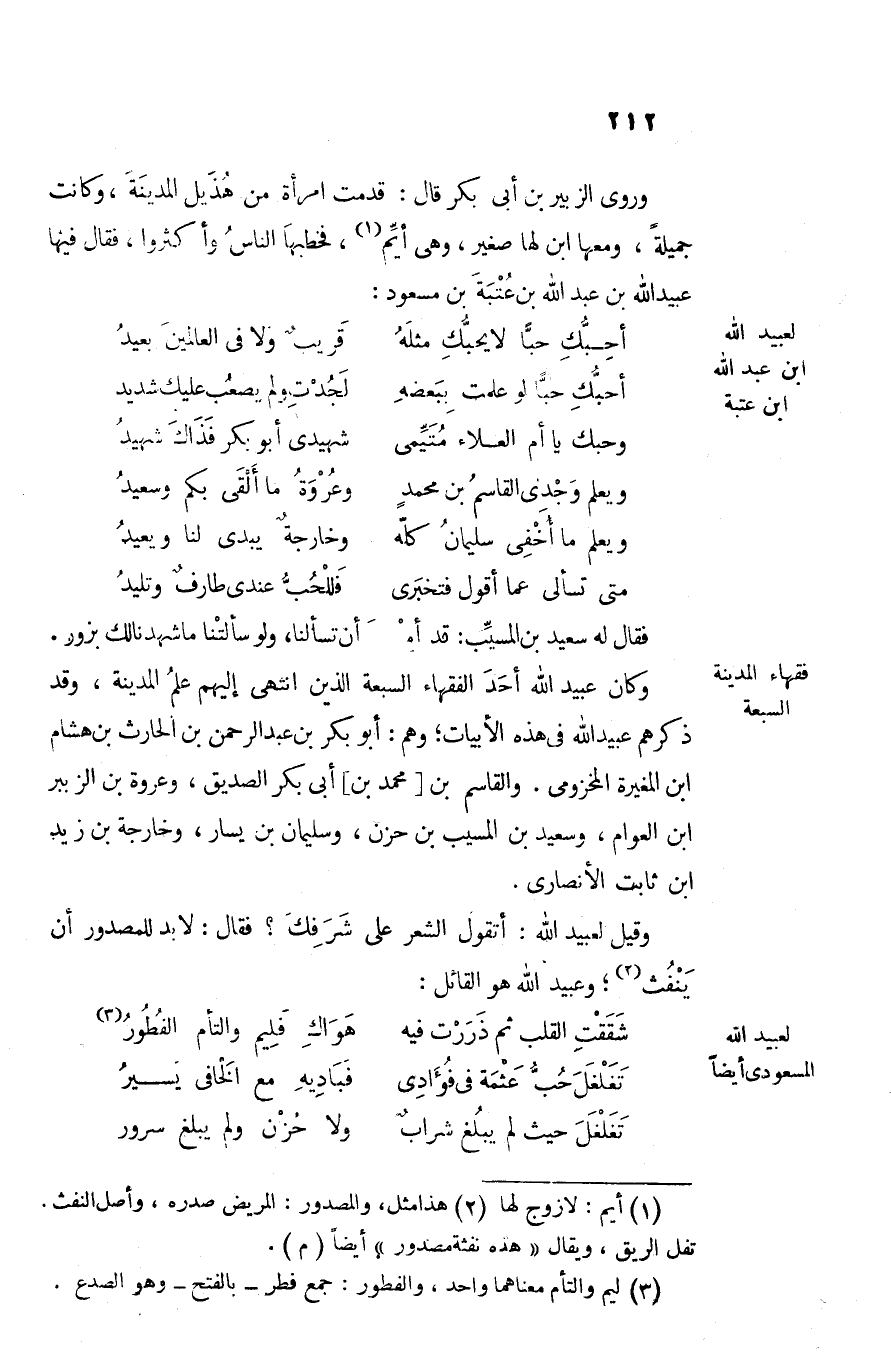 ٢١٢
وروى الزبير بن أبى بكر قال : قدمت امرأة من هُذَيل المدينَةَ ، وكانت
جميلةً ، ومعها ابن لها صغير ، وهى أيِّم(١) ، فخطبها الناسُ وأكثروا ، فقال فيها
عبيدالله بن عبد الله بن عُتْبَةَ بن مسعود :
لعبيد الله
ابن عبد الله
ابن عتبة
أحـِبُّكِ حبًّا لايحبُّكِ مثلَهُ قَريبٌ وَلا فى العالمينَ بعيدُ
أحبُّك حبًّا لو علمت بِبَعضهِ لَجُدْتِ ولم يصعُب عليك شديد
وحبك يا أم العـلاء مُتَيِّمى شهيدى أبو بكر فَذَاكَ شهيدُ
ويعلم وَجْدِى القاسمُ بن محمدٍ وعُرْوَةُ ما أَلْقَى بكم وسعيدُ
ويعلم ما أُخْفِى سليمانُ كلَّه وخارجةٌ يبدى لنا ويعيدُ
متى تسألى عما أقول فتخبَرى فَللْحُبُّ عندى طارفٌ وتليدُ
فقال له سعيد بن المسيِّب: قد أن تسألنا، ولو سألتْنا ماشهدنالك بزور .
فقهاء المدينة
السبعة
وكان عبيد الله أحَدَ الفقهاء السبعة الذين انتهى إليهم علمُ المدينة ، وقد
ذكرهم عبيدالله فى هذه الأبيات؛ وهم : أبو بكر بن عبدالرحمن بن الحارث بن هشام
ابن المغيرة المخزومى . والقاسم بن [ محمد بن] أبى بكر الصديق ، وعروة بن الزبير
ابن العوام ، وسعيد بن المسيب بن حزن ، وسليمان بن يسار ، وخارجة بن زيد
ابن ثابت الأنصارى .
وقيل لعبيد الله : أتقول الشعر على شَرَفِكَ ؟ فقال : لابد للمصدور أن
يَنْفُث(٢) ؛ وعبيد الله هو القائل :
لعبيد الله
المسعودى أيضاً
شَقَقْتِ القلب ثم ذَرَرْت فيه هَوَاكِ فَلِيم والتأم الفُطُورُ(٣)
تَغَلْغَلَ حُبُّ عَثْمَة فى فُؤَادِى فَبَادِيهِ مع الخَافى يَســيرُ
تَغَلْغَلَ حيث لم يبلُغ شرابٌ ولا حُزْن ولم يبلغ سرور
(١) أيم : لازوج لها (٢) هذا مثل، والمصدور : المريض صدره ، وأصل النفث .
تفل الريق ، ويقال « هذه نفثة مصدور » أيضاً ( م ) .
(٣) ليم والتأم معناهما واحد ، والفطور : جمع فطر ــ بالفتح ــ وهو الصدع .